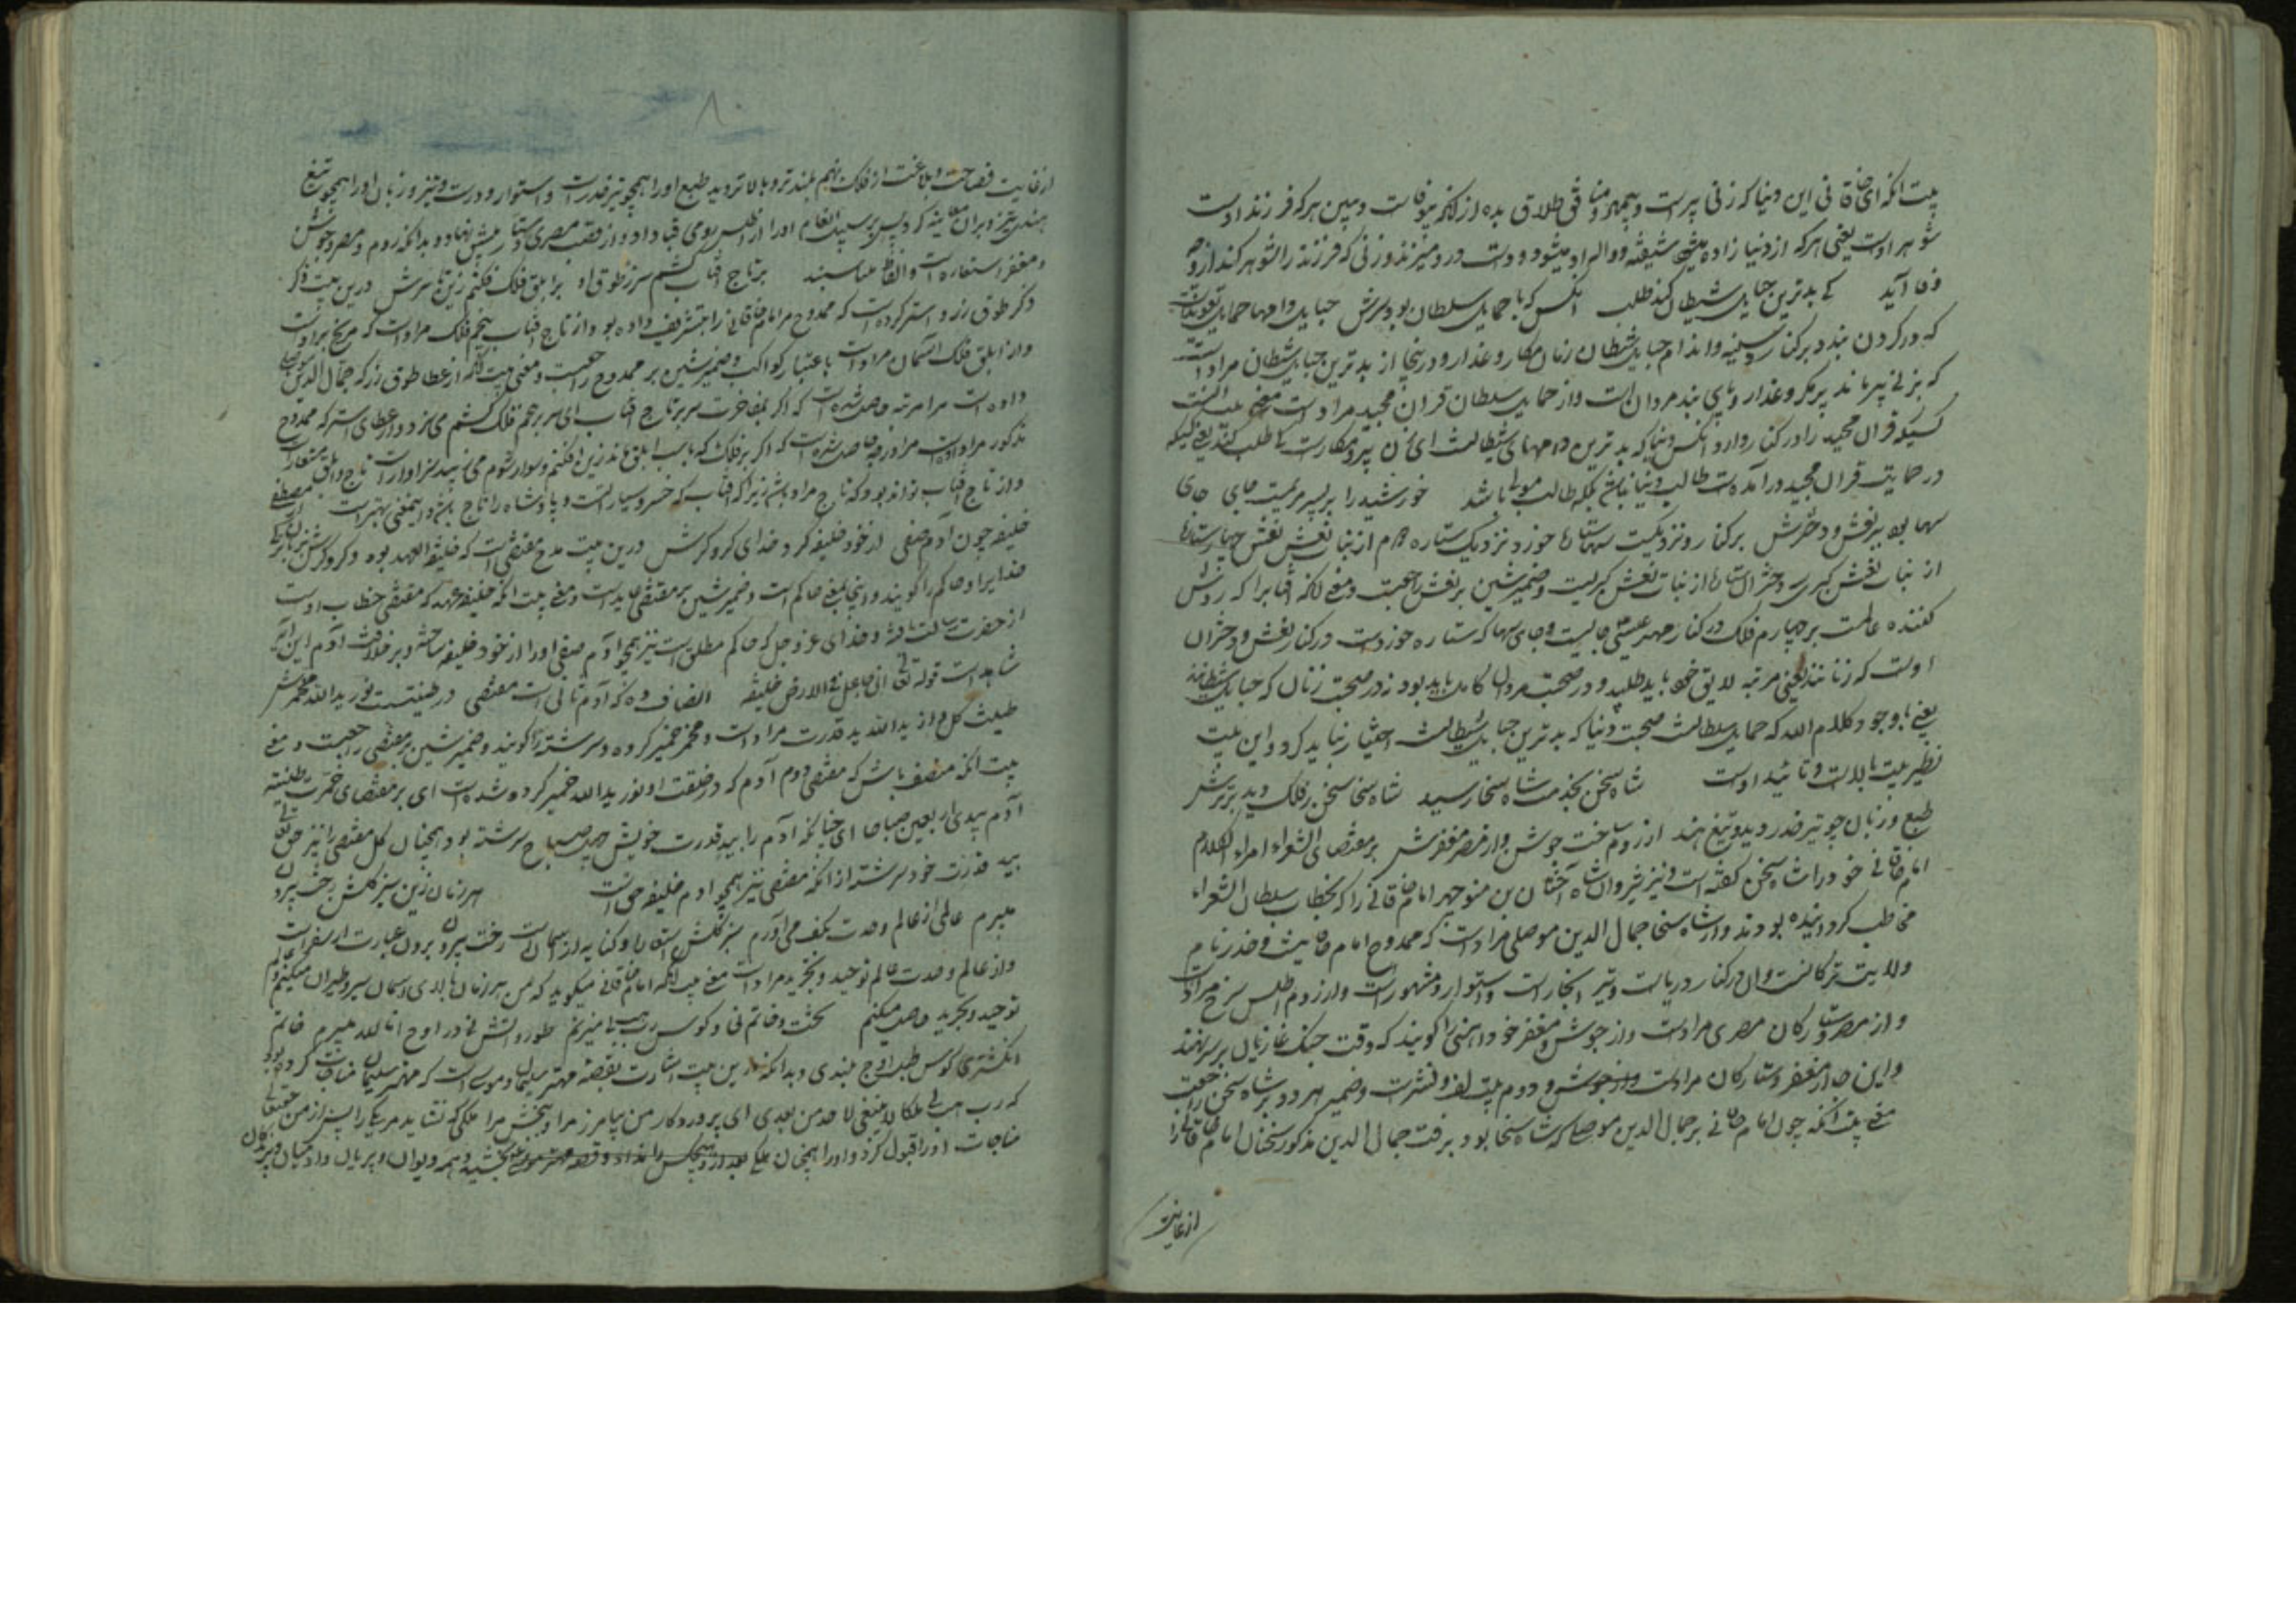 بیت انکه ای خاقانی این دنیا که زنی پیرست و بیمهر و منافق طلاق بده از انکه بیوفاست و ببین هر که فرزند اوست
شوهر اوست یعنی هر که از دنیا زاده میشود شیفته و واله او میشود و دوست دارد و میرند و زنی که فرزند را شوهر کند ازو چه
وفا آید کی بدترین حبایل شیطان کند طلب انکس که با حمایل سلطان بود برش حبایل دامها حمایل تعویذ
که در کردن بندد بر کنار و سینه و اندام حبایل شیطان زنان مکار و غدار و درینجا از بدترین حبایل شیطان مراد است
که بزنی پیر ماند پر مکر و غدار و پای بند مردان است و از حمایل سلطان قران مجید مراد است معنی بیت انست
کسیکه قران مجید را در کنار دارد انکس دنیا که بدترین دامهای شیطانست ای زن پیر مکارست کی طلب کند یعنی کسیکه
در حمایت قران مجید درآمده است طالب دنیا نباشد بلکه طالب مولی باشد خورشید را بر پسر مریمست جای جای
سها بود بر نعش و دخترش برکنار و نزدیکیست سها ستاره خورد نزدیک ستاره دوم از بنات نعش نعش چهار ستاره
از بنات نعش کبری و دختر ان ستاره از بنات نعش کبریست و ضمیر شین بر نعش راجعست و معنی انکه افتاب را که روشن
کننده عالمست بر چهارم فلک در کنار مهتر عیسی جایست و جای سها که ستاره خوردست در کنار نعش و دختران
اوست که زنانند یعنی مرتبه لایق خود باید طلبید و در صحبت مردان کامل باید بود نه در صحبت زنان که حبایل شیطانند
یعنی با وجود کلام الله که حمایل سلطانست صحبت دنیا که بدترین حبایل شیطانست اختیار نباید کرد و این بیت
نظیر بیت بالاست و تائید اوست شاه سخن بخدمت شاه سخا رسید شاه سخا سخن ز فلک دید برترش
طبع و زبان چو تیر خدر دید و تیغ هند از روم ساخت جوش و از مصر مغفرش بر مقتضای الشعراء امراء الکلام
امام خاقانی خود را شاه سخن گفته است و نیز شروان شاه اخستان بن منوچهر امام خاقانی را که بخطاب سلطان الشعراء
مخاطب کردانیده بودند و از شاه سخا جمال الدین موصلی مراد است که ممدوح امام خاقانیست و خدر نام
ولایت ترکانست و ان در کنار دریاست و تیر انجا راست و استوار و مشهورست و از روم اطلس سرخ مراد است
و از مصر دستارکان مصری مرادست و از جوش و مغفر خود آهنی را کویند که وقت جنک غازیان بر سر نهند
و این جا از مغفر دستارکان مرادست و از جوش و دوم بیت لف و نشرست و ضمیر هر دو بر شاه سخن راجعست
معنی بیت انکه چون امام خاقانی بر جمال الدین موصلی که شاه سخا بود برفت جمال الدین مذکور سخنان امام خاقانی را
از غایت
۸۰
از غایت فصاحت و بلاغت از فلک نهم بلند تر و بالا تر دید طبع او را همچو تیر خدر راست و استوار و درست و تیز و زبان او را همچو تیغ
هندی تیز و بران معاینه کرد پس بر سبیل انعام او را از اطلس رومی قبا داد و از قصب مصری دستار پیشش نهاد و بدانکه روم و مصر و جوش
و مغفر استعاره است و الفاظ مناسبند بر تاج افتاب کشم سر ز طوق او بر ابلق فلک فکنم زین استرش درین بیت ذکر
ذکر طوق زر و استر کرده است که ممدوح مر امام خاقانی را بتشریف داده بود و از تاج افتاب پنجم فلک مراد است که مریخ بر اوست
و از ابلق فلک آسمان مراد است باعتبار کواکب و ضمیر شین بر ممدوح راجعست و معنی بیت انکه از عطا طوق زر که جمال الدین موصلی
داده است مرا مرتبه حاصل شده است که اکر بمفاخرت سر بر تاج افتاب ای سر بر پنجم فلک کشم می سزد و از عطای استر که ممدوح
مذکور مرا داده است مرا درجه حاصل شده است که اکر بر فلک که باسب ابلق ماند زین افکنم و سوار شوم می زیبد سزاوار است تاج و ابلق مستعار است
و از تاج افتاب تواند بود که تاج مراد باشد زیرا که افتاب که خسرو سیارانست و پادشاه را تاج باید و اینمعنی بهترست مصطفی
خلیفه چون آدم صفی از خود خلیفه کرد خدای کروکرش درین بیت مدح مقتفی است که خلیفة العهد بوده و کروکر بزبان
خدایرا و حاکم را کویند و اینجا بمعنی حاکم است و ضمیر شین بر مقتفی عاید است و معنی بیت انکه خلیفه عهد که مقتفی خطاب اوست
از حضرت رسالت یافته و خدای عز و جل که حاکم مطلق است نیز همچو آدم صفی او را از خود خلیفه ساخته و بر خلافت آدم این آیه
شاهد است قوله تعالی انی جاعل فی الارض خلیفه انصاف ده که آدم ثانی است مقتفی در طینتست نور یدالله مخمرش
طینت کل و از یدالله ید قدرت مراد است و مخمر خمیر کرده و سرشته را کویند و ضمیر شین بر مقتفی راجعست و معنی
بیت انکه منصف باش که مقتفی دوم آدم که در خلقت او نور یدالله خمیر کرده شده است ای بر مقتضای خمرت طینة
آدم بیدی اربعین صباحا ای چنانکه آدم را بید قدرت خویش چهل صباح سرشته بود همچنان کل مقتفی را نیز حق تعالی
بید قدرت خود سرشته از انکه مقتفی نیز همچو ادم خلیفه حق است هر زمان زین سبز کلشن رخت بیرون
میبرم عالمی از عالم وحدت بکف می آورم سبز کلشن استعاره و کنایه از آسمانست رخت بیرون بردن عبارت از سفر است
و از عالم وحدت عالم توحید و تجرید مراد است معنی بیت انکه امام خاقانی میکوید که من هر زمان بالای آسمان سیر و طیران میکنم و عالم
توحید و تجرید حاصل میکنم تخت و خاتم نی و کوس رب هب لی میزنم طور و اتش نی و در اوج انا الله میپرم خاتم
انکشتری کوس طبل اوج بلندی و بدانکه درین بیت اشارت بقصه مهتر سلیمان و موسی است که مهتر سلیمان مناجات کرده بود
که رب هب لی ملکا لا ینبغی لاحد من بعدی ای پروردکار من بیامرز مرا و ببخش مرا ملکی که نشاید مر یکی را پس از من حقتعالی
مناجات او را قبول کرد و او را همچنان ملکی بخشید و همه دیوان و پریان و ادمیان و پرندکان